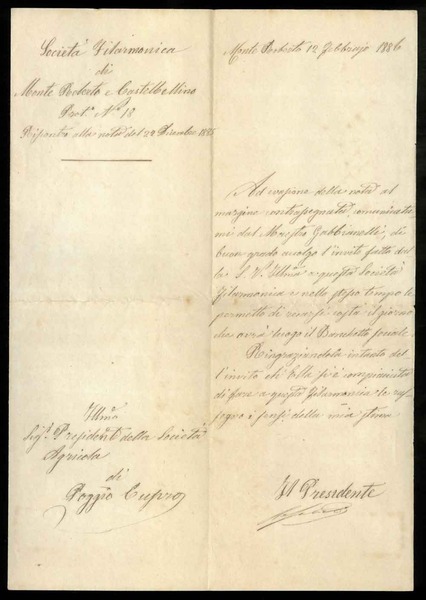 Società Filarmonica
di
Monte Roberto e Castelbellino
Prot.º Nº 18
Risposta alla nota del 29 Dicembre 1885
Monte Roberto 12 Febbrajo 1886
Ad evasione della nota al
margine contrassegnata comunicata
mi dal Maestro Gabbianelli, di
buon grado accolgo l'invito fatto dal
la S. V. Illma a questa Società
Filarmonica e nello stesso tempo le
permetto di recarsi costà il giorno
che avrà luogo il Banchetto sociale.
Ringraziandola intanto del
l'invito che Ella si è compiaciuta
di fare a questa Filarmonica le ras-
segno i sensi della mia stima
Illmo
Sig. Presidente della Società
Agricola
di
Poggio Cupro
Il Presidente